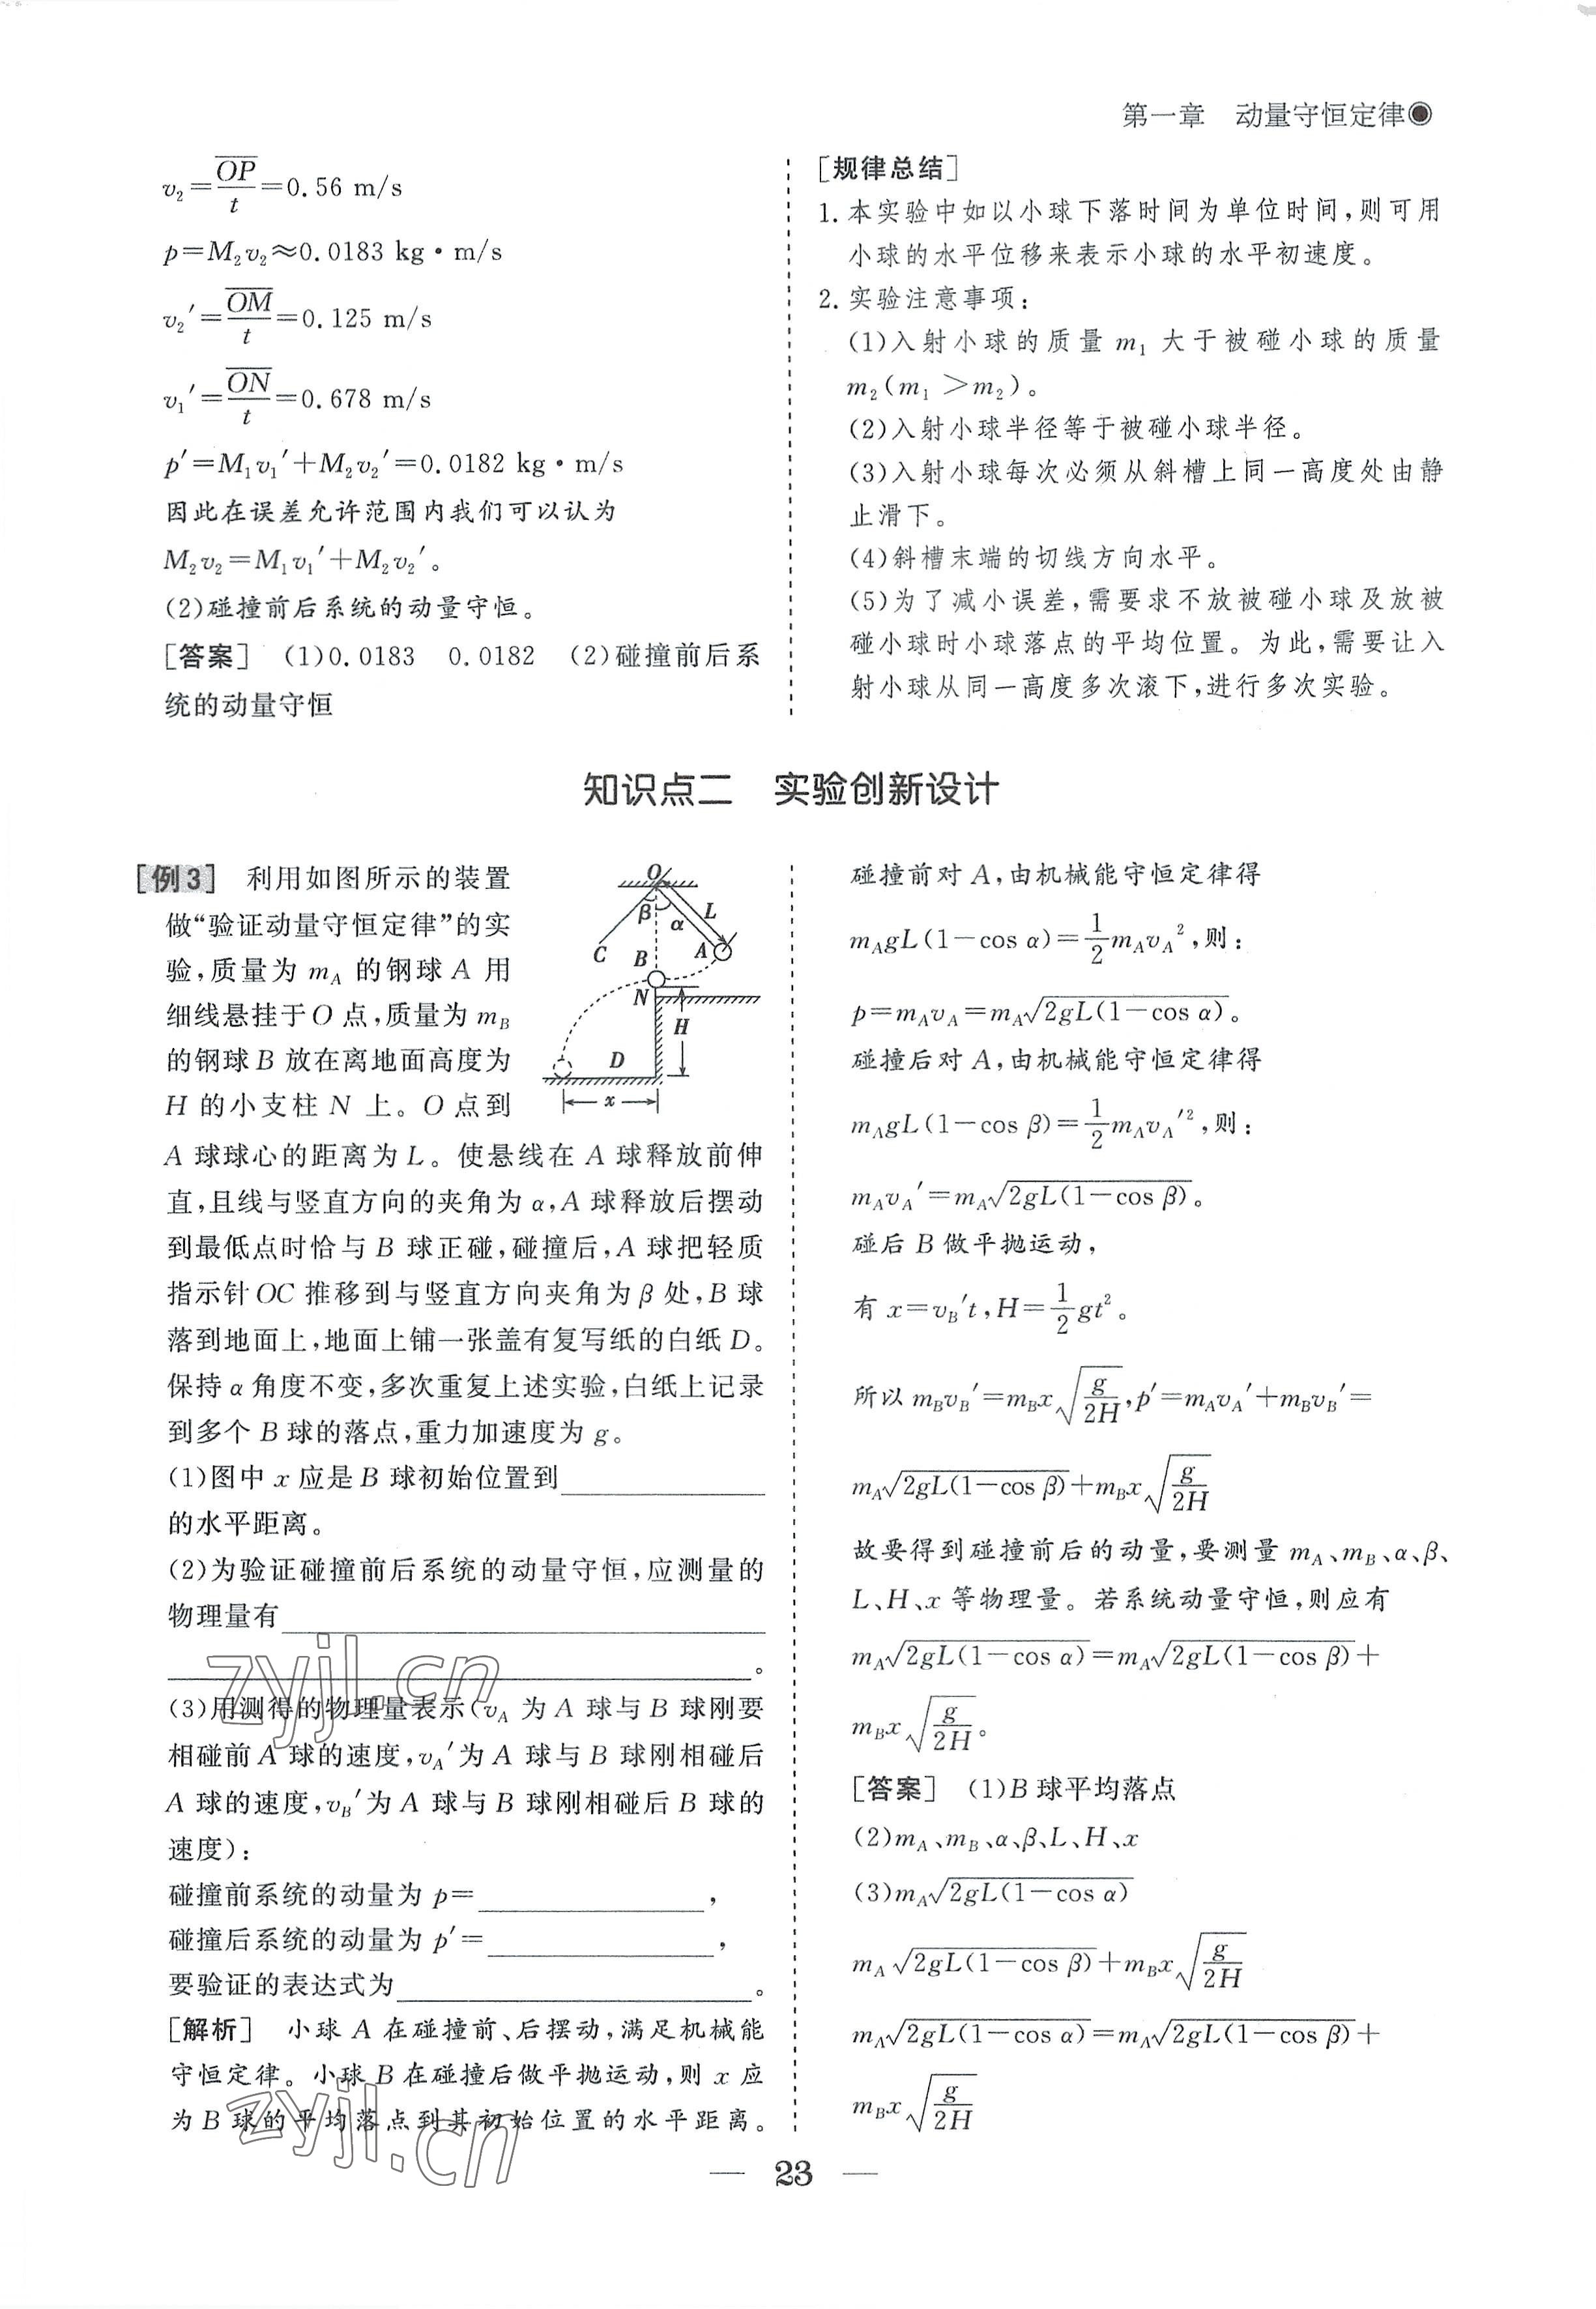 第一章 动量守恒定律
v₂=OP/t=0.56 m/s
p=M₂v₂≈0.0183 kg·m/s
v₂′=OM/t=0.125 m/s
v₁′=ON/t=0.678 m/s
p′=M₁v₁′+M₂v₂′=0.0182 kg·m/s
因此在误差允许范围内我们可以认为
M₂v₂=M₁v₁′+M₂v₂′。
(2)碰撞前后系统的动量守恒。
[答案] (1)0.0183 0.0182 (2)碰撞前后系
统的动量守恒
[规律总结]
1.本实验中如以小球下落时间为单位时间,则可用
小球的水平位移来表示小球的水平初速度。
2.实验注意事项:
(1)入射小球的质量 m₁ 大于被碰小球的质量
m₂(m₁>m₂)。
(2)入射小球半径等于被碰小球半径。
(3)入射小球每次必须从斜槽上同一高度处由静
止滑下。
(4)斜槽末端的切线方向水平。
(5)为了减小误差,需要求不放被碰小球及放被
碰小球时小球落点的平均位置。为此,需要让入
射小球从同一高度多次滚下,进行多次实验。
知识点二 实验创新设计
[例3] 利用如图所示的装置
做“验证动量守恒定律”的实
验,质量为 m_A 的钢球 A 用
细线悬挂于 O 点,质量为 m_B
的钢球 B 放在离地面高度为
H 的小支柱 N 上。O 点到
O
β
α
L
C
B
A
N
H
D
x
A 球球心的距离为 L。使悬线在 A 球释放前伸
直,且线与竖直方向的夹角为 α,A 球释放后摆动
到最低点时恰与 B 球正碰,碰撞后,A 球把轻质
指示针 OC 推移到与竖直方向夹角为 β 处,B 球
落到地面上,地面上铺一张盖有复写纸的白纸 D。
保持 α 角度不变,多次重复上述实验,白纸上记录
到多个 B 球的落点,重力加速度为 g。
(1)图中 x 应是 B 球初始位置到____________
的水平距离。
(2)为验证碰撞前后系统的动量守恒,应测量的
物理量有____________
____________。
(3)用测得的物理量表示(v_A 为 A 球与 B 球刚要
相碰前 A 球的速度,v_A′为 A 球与 B 球刚相碰后
A 球的速度,v_B′为 A 球与 B 球刚相碰后 B 球的
速度):
碰撞前系统的动量为 p=____________,
碰撞后系统的动量为 p′=____________,
要验证的表达式为____________。
[解析] 小球 A 在碰撞前、后摆动,满足机械能
守恒定律。小球 B 在碰撞后做平抛运动,则 x 应
为 B 球的平均落点到其初始位置的水平距离。
碰撞前对 A,由机械能守恒定律得
m_AgL(1-cos α)=1/2 m_Av_A²,则:
p=m_Av_A=m_A√(2gL(1-cos α))。
碰撞后对 A,由机械能守恒定律得
m_AgL(1-cos β)=1/2 m_Av_A′²,则:
m_Av_A′=m_A√(2gL(1-cos β))。
碰后 B 做平抛运动,
有 x=v_B′t,H=1/2 gt²。
所以 m_Bv_B′=m_Bx√(g/2H),p′=m_Av_A′+m_Bv_B′=
m_A√(2gL(1-cos β))+m_Bx√(g/2H)
故要得到碰撞前后的动量,要测量 m_A、m_B、α、β、
L、H、x 等物理量。若系统动量守恒,则应有
m_A√(2gL(1-cos α))=m_A√(2gL(1-cos β))+
m_Bx√(g/2H)。
[答案] (1)B 球平均落点
(2)m_A、m_B、α、β、L、H、x
(3)m_A√(2gL(1-cos α))
m_A√(2gL(1-cos β))+m_Bx√(g/2H)
m_A√(2gL(1-cos α))=m_A√(2gL(1-cos β))+
m_Bx√(g/2H)
— 23 —
zyjl.cn
zyjl.cn